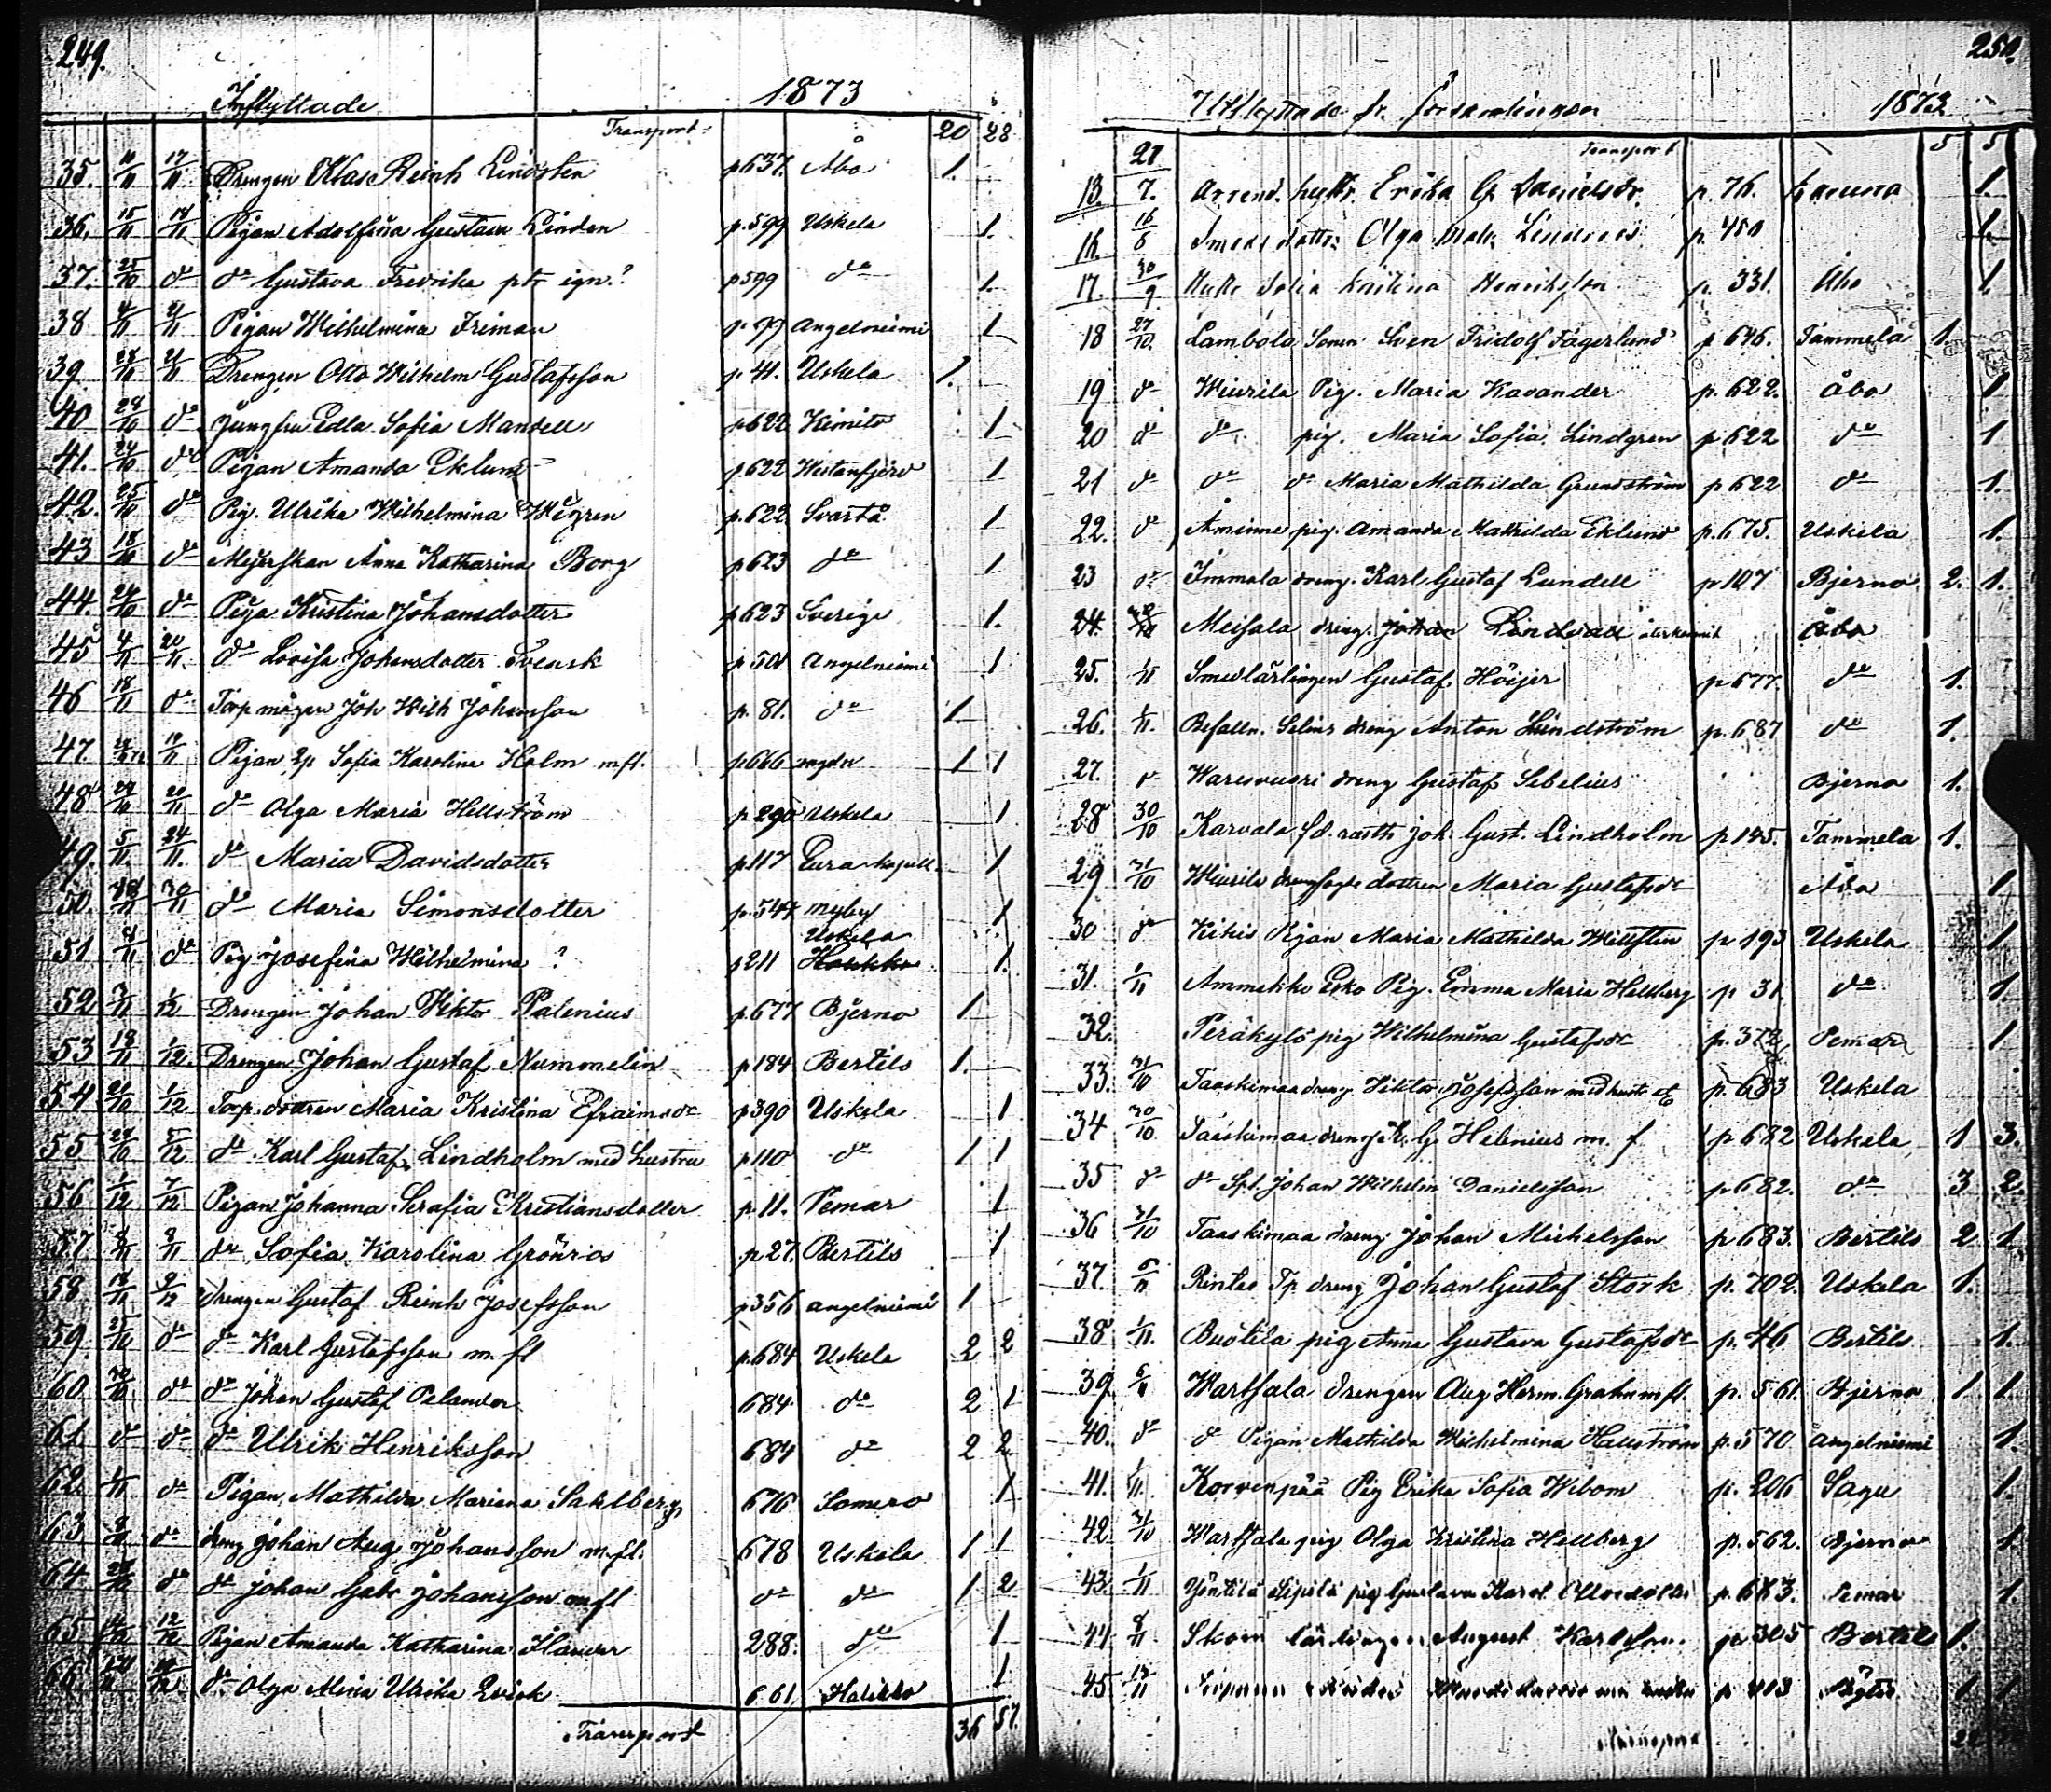 249.
Inflyttade 1873
Transport 20 28
35. 10/11 17/11 Drengen Klas Reinh Lindsten p637. Åbo 1.
36. 15/11 18/11 Pigan Adolfina Gustava Linden p.599 Uskela 1.
37. 25/10 do do Gustava Fredrika pt ign.? p599 do 1.
38 21/11 Pigan Wilhelmina Friman Angelniemi 1
39 28/10 21/11 Drengen Otto Wilhelm Gustafsson p. 41. Uskela 1.
40 24/10 do Jungfru Edla Sofia Mandell p622 Kimito 1
41. 24/10 do Pigan Amanda Eklund p.622 Westanfjerd 1
42. 25/10 do Pig. Ulrika Wilhelmina Wegren p.622 Svartå 1
43 18/10 do Mejerskan Anna Katharina Borg p623 do 1
44. 24/10 do Piga Kristina Johansdotter p623 Sverige 1.
45 4/11 20/11 do Lovisa Johansdotter Svensk p501 Angelniemi 1
46 18/11 do Torp mågen Joh Wilh Johansson p. 81. do 1
47. 19/11 Pigan Sofia Karolina Holm m.fl. p666 1 1
48 24/10 20/11 do Olga Maria Hellström p290 Uskela 1
49. 5/11 24/11. do Maria Davidsdotter p117 Eura kapell 1
50. 30/11 do Maria Simonsdotter p.547 1
Uskela
51 do Pig Josefina Wilhelmina ? p211 1.
52 1/12 Drengen Johan Viktor Palenius p.677 Bjerno 1
53 19/11 1/12. Drengen Johan Gustaf Nummelin p184 Bertils 1.
54 24/10 1/12 Torp. dottren Maria Kristina Efraimsdr p390 Uskela 1
55 28/10 5/12 do Karl Gustaf Lindholm med hustru p110 do 1 1
56 1/12 7/12 Pigan Johanna Serafia Kristiansdotter p. 11. Pemar 1
57 do Sofia Karolina Grönros p27. Bertils 1
58 18/11 9/12 drengen Gustaf Reinh Josefsson p356 angelniemi 1
59. 25/10 do do Karl Gustafsson m. fl p.684 Uskela 2 2
60. 30/10 do do Johan Gustaf Pelander 684 do 2 1
61 do do do Ulrik Henriksson 684 do 2 2
62. 1/11 do Pigan Mathilda Mariana Sahlberg 676 Somero 1
63 do dreng Johan Aug. Johansson m.fl. 678 Uskela 1 1
64. 28/10 do do Johan Gabr Johansson m.fl do do 1 2
65. 12/12 Pigan Amanda Katharina Ilander 288. do 1
66. do Olga Alina Ulrika Qvick 661 Halikko 1
Transport 36 57.
250.
Utflyttade fr. församlingen 1873
Transport 5 5
13. 27/7. Arrend. hustr. Erika G. Danielsdr. p. 76. Karuna 1.
16. 16/6 Smeds dottr. Olga Lindroos p. 450 1.
17. 30/9 Sofia Henriksson p. 331. Åbo 1.
18 27/10. Lambola Sonen Sven Fridolf Fagerlund p 646. Tammela 1.
19 do Wiurila Pig. Maria Kavander p. 622. åbo 1
20 do do pig. Maria Sofia Lindgren p 622 do 1
21 do do do Maria Mathilda Grundström p 622 do 1.
22. do Åminne pig. Amanda Mathilda Eklund p.675. Uskela 1.
23 do Immala dreng. Karl Gustaf Lundell p 107 Bjerno 2. 1.
24. Meisala dreng. Johan Lindvall återkommit Åbo
25. 1/11 Smedlärlingen Gustaf Höijer p 677. do 1.
26. 1/11. Befalln. Selins dreng Anton Lundström p. 687 do 1.
27. do Waresvuori dreng Gustaf Sebelius Bjerno 1.
28 30/10 Karvala fd. rusth joh. Gust. Lindholm p 145. Tammela 1.
29 31/10 Wiurila drengfogde dottren Maria Gustafsdr Åbo 1
30 do Kikis Pigan Maria Mathilda Willstén p 193 Uskela 1
31. 1/11 Ammekko Esko Pig. Emma Maria Hellberg p 31. do 1.
32. Peräkylä pig Wilhelmina Gustafsdr p. 372, Pemar 1
33. 31/10 Taaskimaa dreng Viktor Josefsson med hustr p. 683 Uskela
34 30/10 Taaskimaa dreng K. G. Helenius m. f p 682 Uskela 1 3.
35 do do Spl. Johan Wilhelm Danielsson p 682. do 3 2.
36 31/10 Taaskimaa dreng Johan Michelsson p 683. Bertils 2 1
37. Rintee Tp. dreng Johan Gustaf Stork p. 702. Uskela 1.
38 1/11. Buotila pig Anna Gustava Gustafsdr p. 46 Bertils 1.
39. 6/11 Wartsala drengen Aug Herm. Grahn m.fl. p. 561. Bjerno 1 1.
40. do do Pigan Mathilda Wilhelmina Hellström p. 570 angelniemi 1.
41. 1/11. Korvenpää Pig Erika Sofia Wibom p. 206 Sagu 1.
42 31/10 Wartsala pig Olga Kristina Hellberg p. 562. Bjerno 1.
43. 1/11 Yöntilä Sipilä pig Gustava Karol. p. 683. Pemar 1.
44. 8/11. Skom lärlingen August Karlsson. p. 305 Bertils 1.
45 p 413 1 1